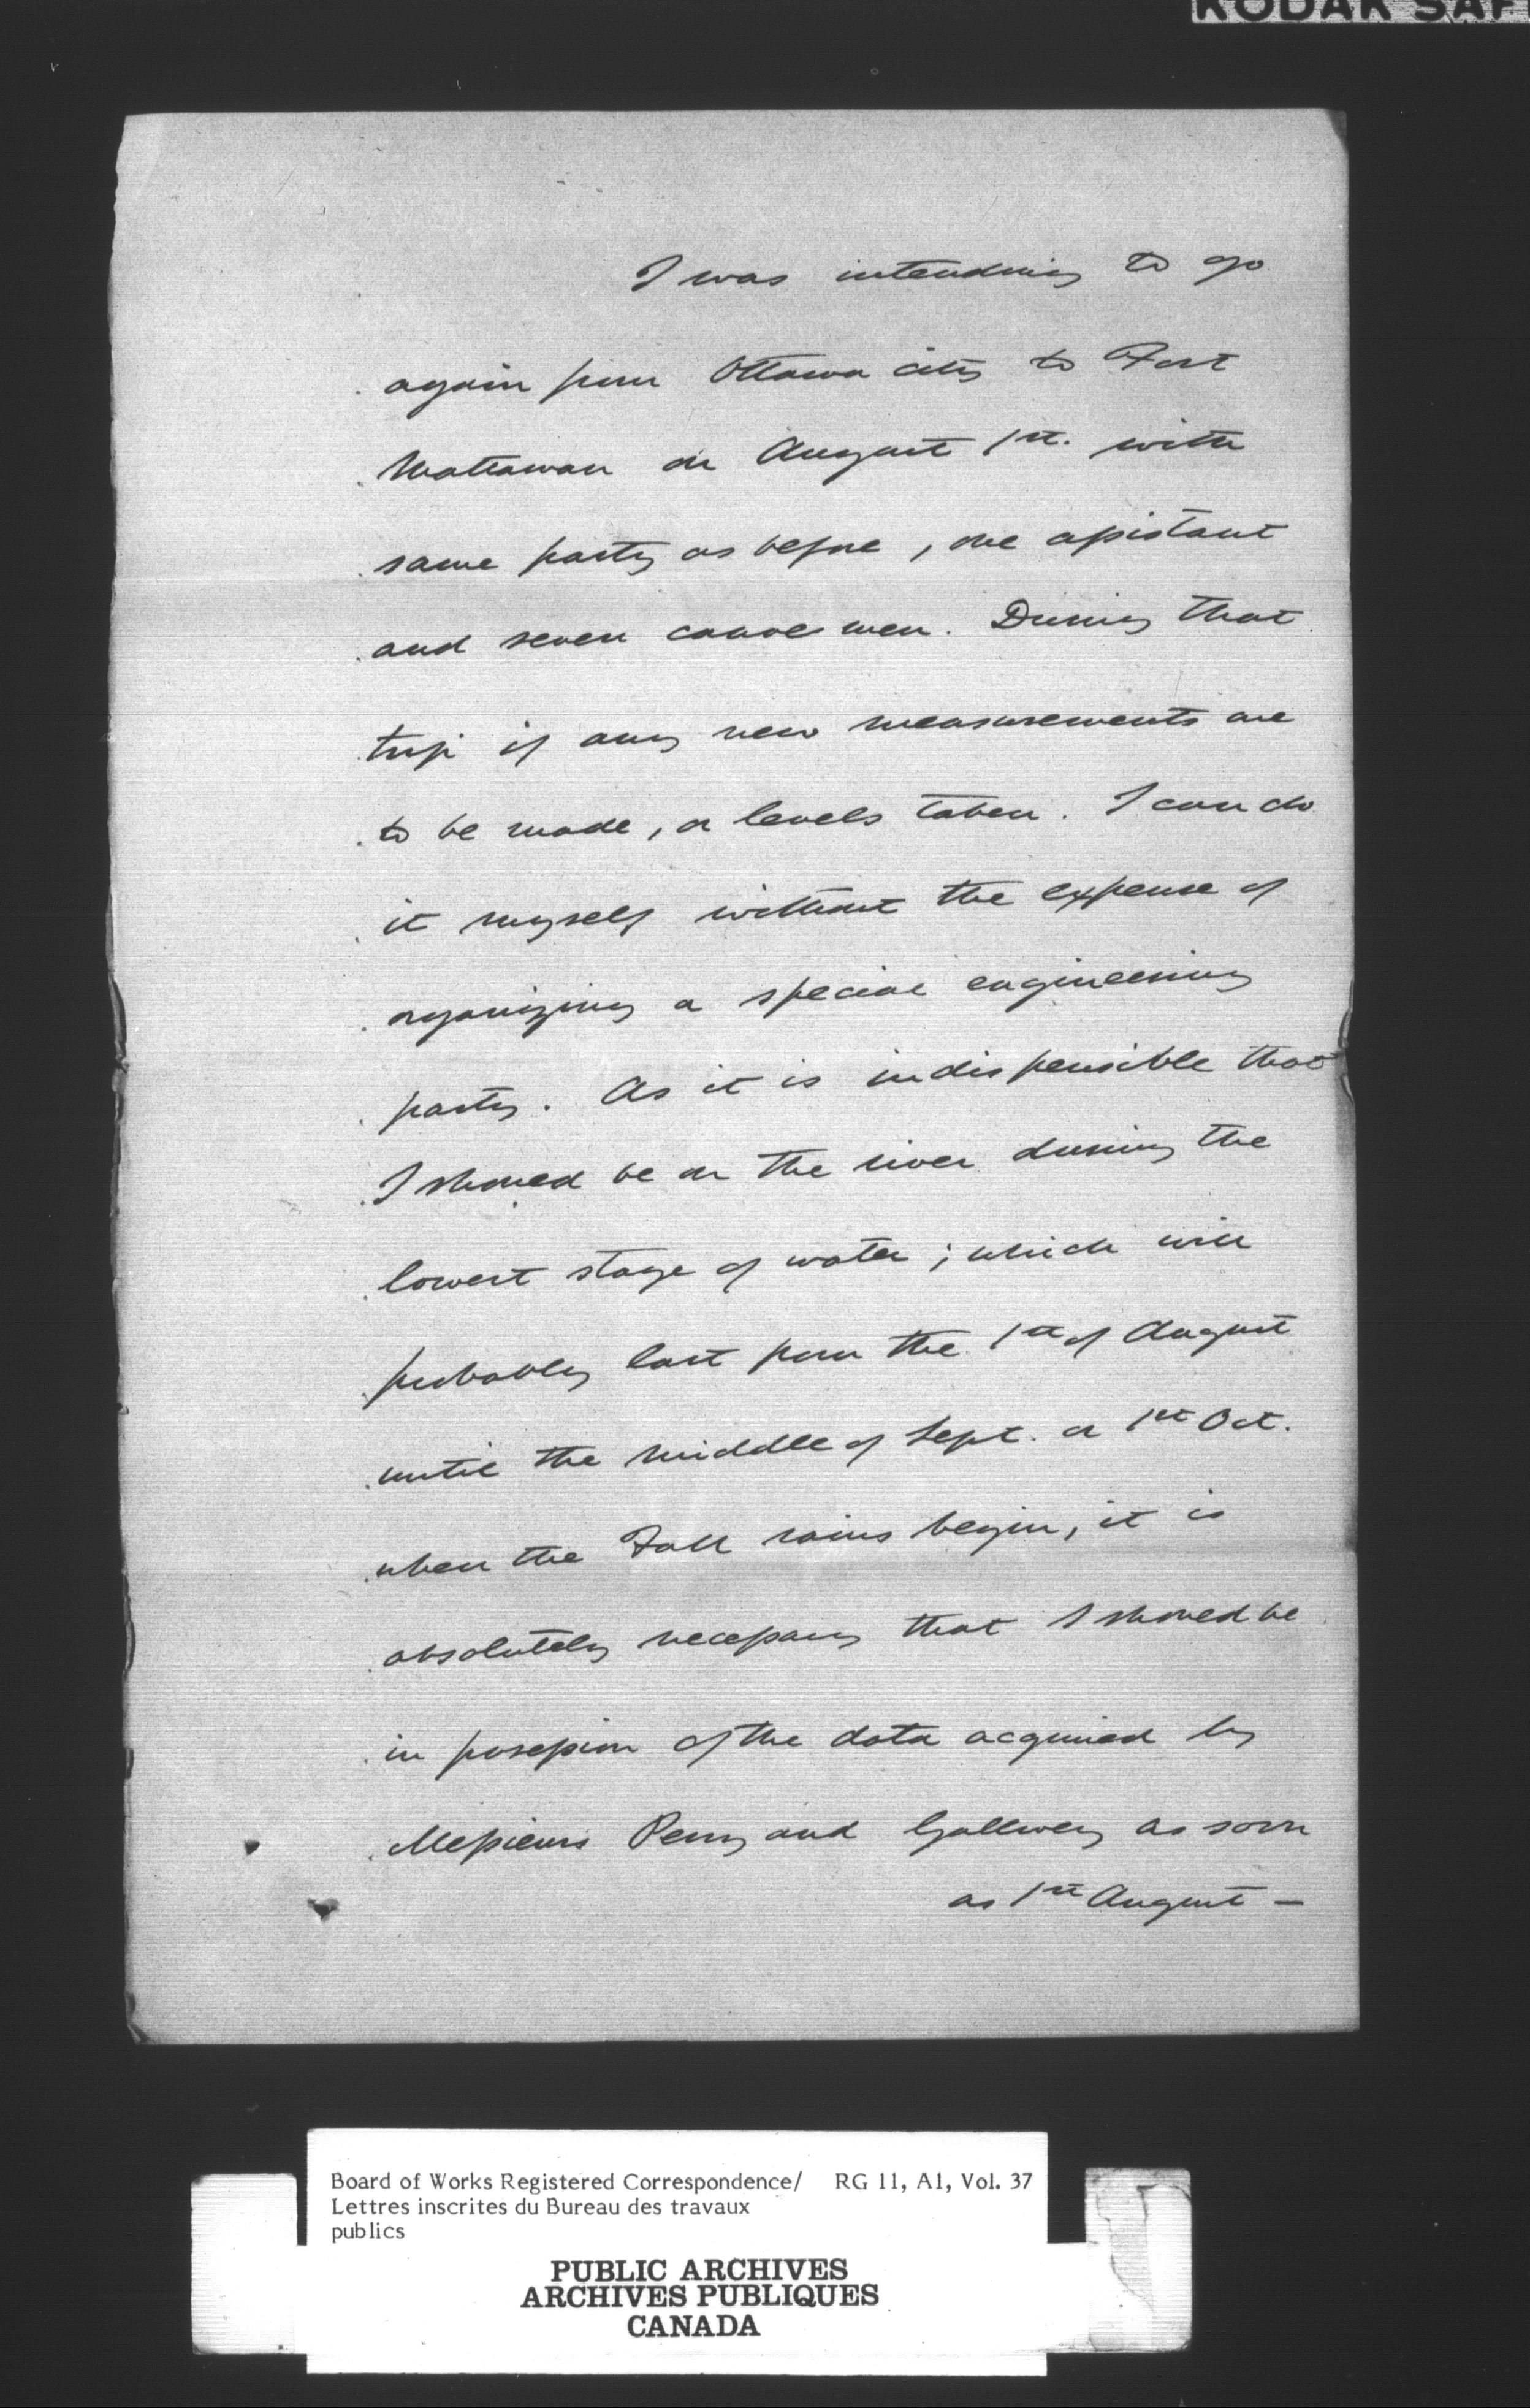 KODAK SAF
I was intending to go
again from Ottawa city to Fort
Mattawan on August 1st. with
same party as before, one assistant
and seven canoe men. During that
trip if any new measurements are
to be made, or levels taken. I can do
it myself without the expense of
organizing a special engineering
party. As it is indispensible that
I should be on the river during the
lowest stage of water; which will
probably last from the 1st of August
until the middle of Sept. or 1st Oct.
when the Fall rains begin, it is
absolutely necessary that I should be
in possession of the data acquired by
Messieurs Perry and Gallwey as soon
as 1st August —
Board of Works Registered Correspondence/ RG 11, A1, Vol. 37
Lettres inscrites du Bureau des travaux
publics
PUBLIC ARCHIVES
ARCHIVES PUBLIQUES
CANADA